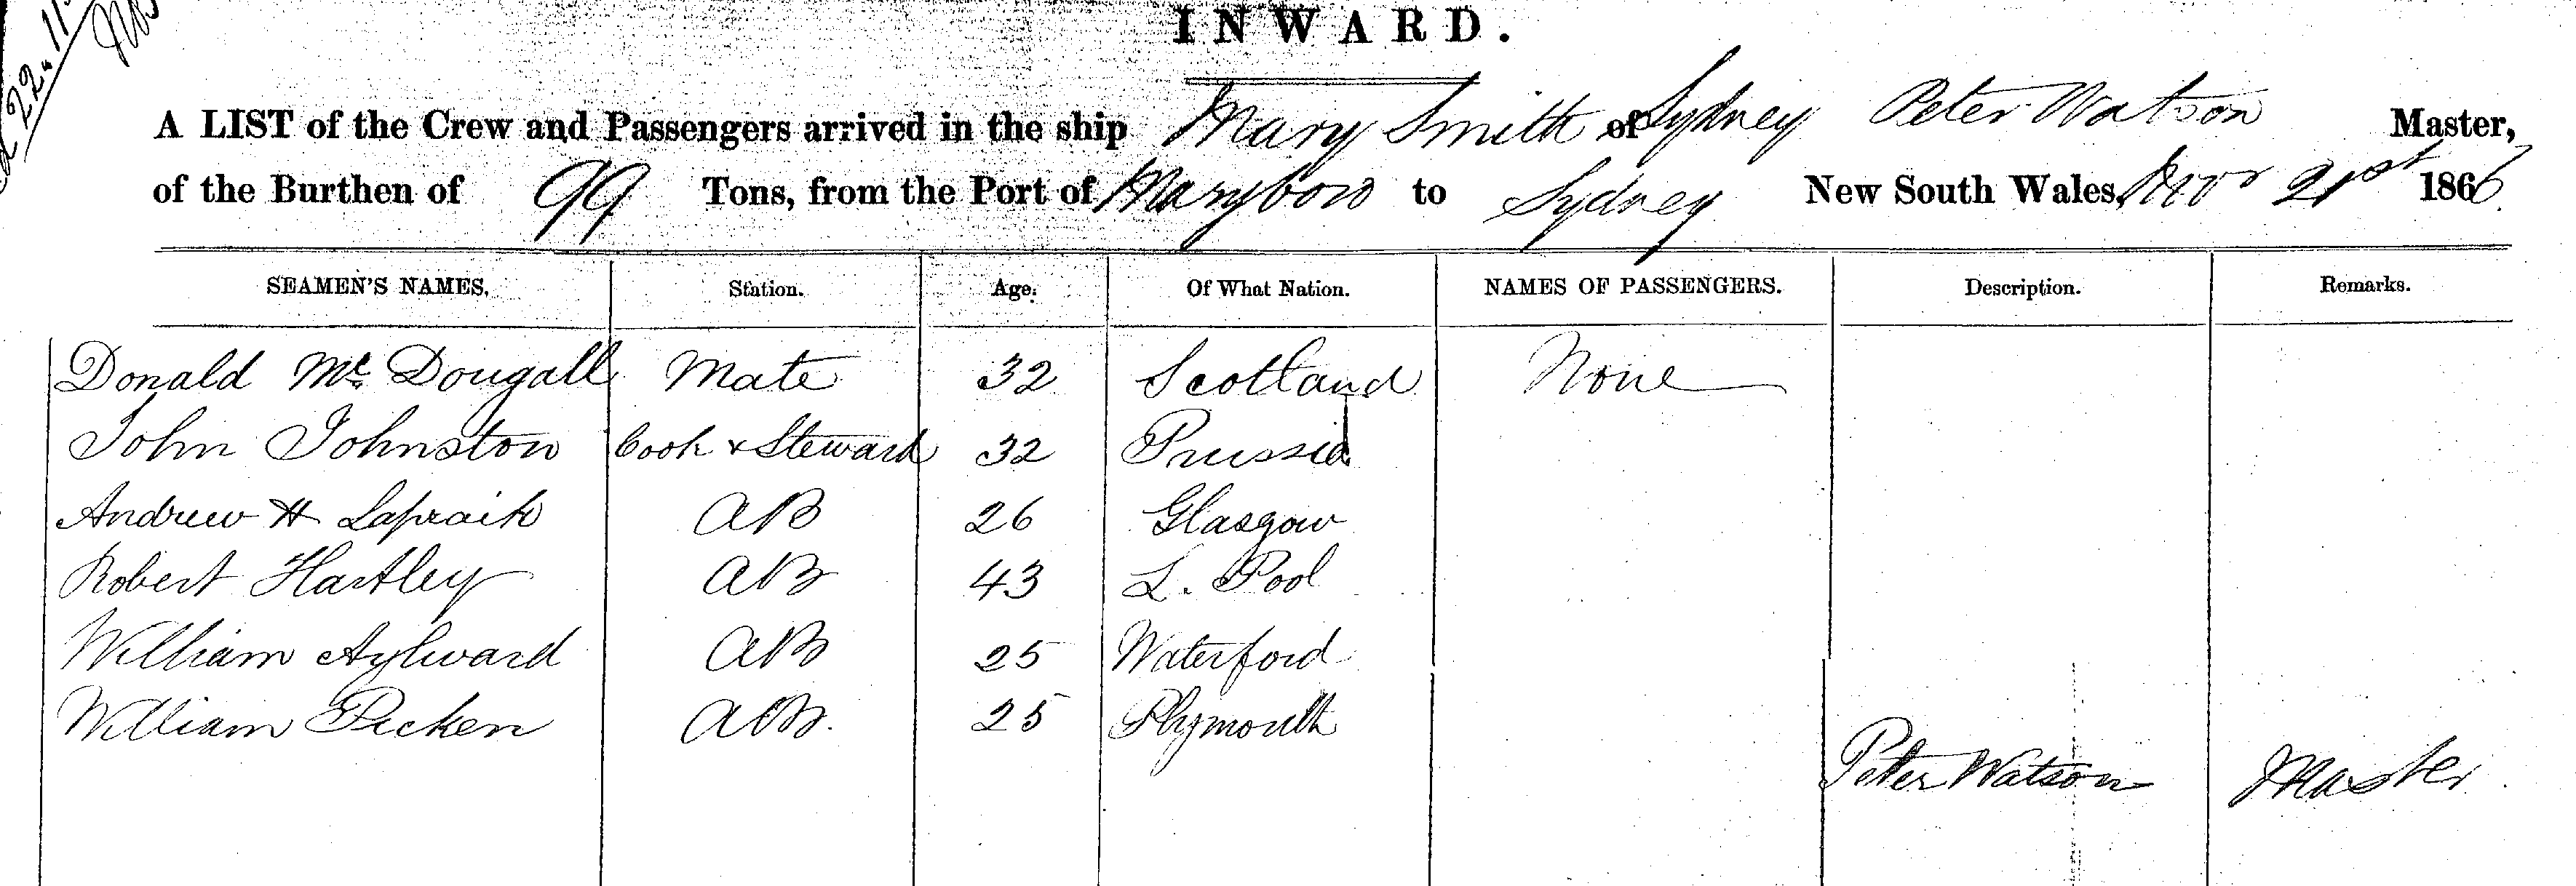 22. 11.
INWARD.
A LIST of the Crew and Passengers arrived in the ship Mary Smith of Sydney Peter Watson Master,
of the Burthen of 99 Tons, from the Port of Maryboro to Sydney New South Wales, Novr 21st 1866
SEAMEN'S NAMES, Station. Age. Of What Nation. NAMES OF PASSENGERS. Description. Remarks.
Donald Mc Dougall Mate 32 Scotland None
John Johnston Cook & Steward 32 Prussia
Andrew H Lapraik AB 26 Glasgow
Robert Hartley AB 43 L. Pool
William Aylward AB 25 Waterford
William Picken AB. 25 Plymouth
Peter Watson Master